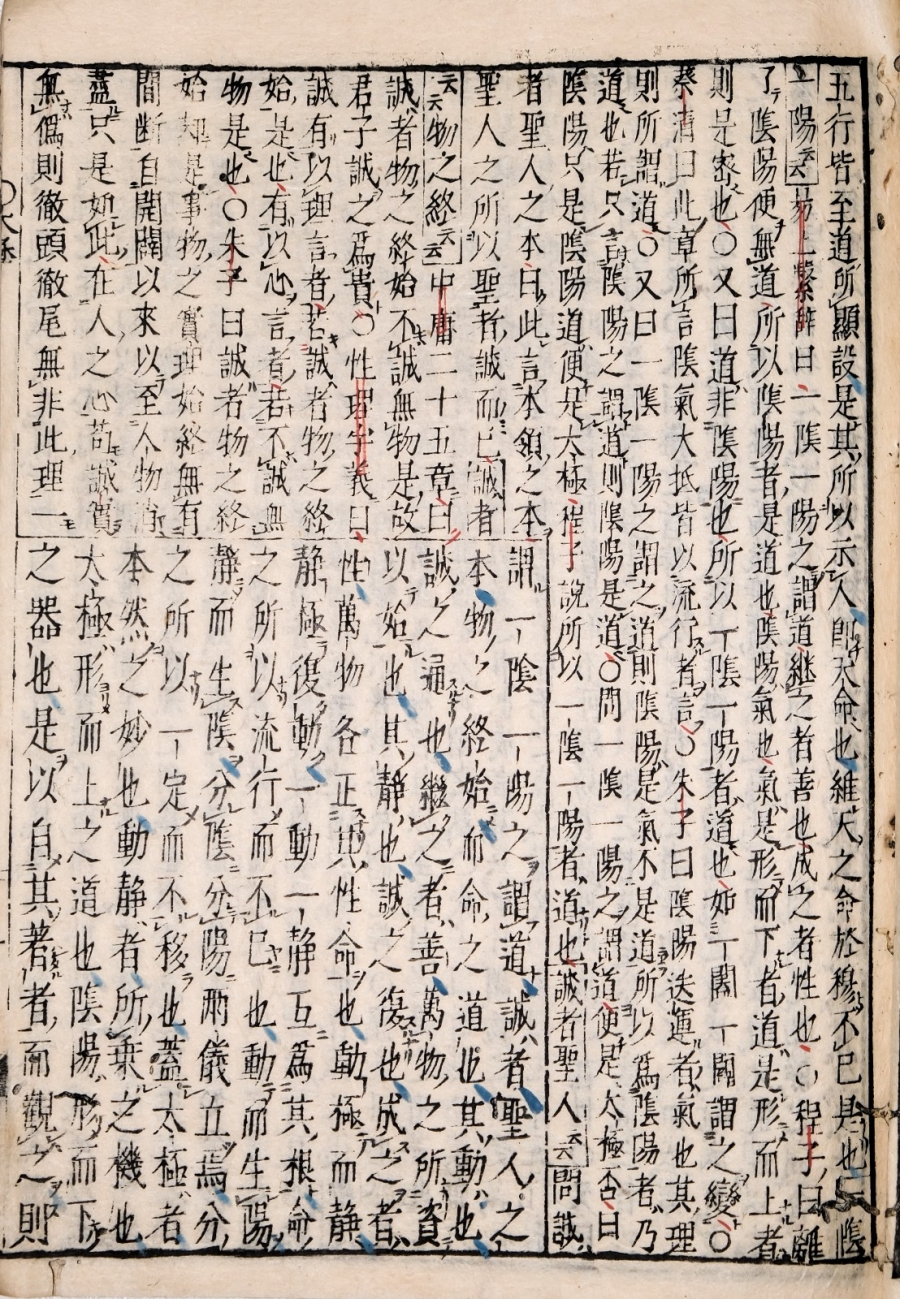 五行皆至道所顯設是其所以示人卽天命也維天之命於穆不已是也一陰
一陽云云易上繫辭曰一陰一陽之謂道繼之者善也成之者性也○程子曰離
了陰陽便無道所以陰陽者是道也陰陽氣也氣是形而下者道是形而上者
則是密也○又曰道非陰陽也所以一陰一陽者道也如一闔一闢謂之變○
蔡清曰此章所言陰氣大抵皆以流行者言○朱子曰陰陽迭運者氣也其理
則所謂道○又曰一陰一陽之謂之道則陰陽是氣不是道所以爲陰陽者乃
道也若只言陰陽之謂道則陰陽是道○問一陰一陽之謂道便是太極否曰
陰陽只是陰陽道便是太極程子說所以一陰一陽者道也誠者聖人云云問誠
者聖人之本曰此言本領之本
聖人之所以聖者誠而已誠者
云云物之終云云中庸二十五章曰
誠者物之終始不誠無物是故
君子誠之爲貴○性理字義曰
誠有以理言者若誠者物之終
始是也有以心言者若不誠無
物是也○朱子曰誠者物之終
始却是事物之實理始終無有
間斷自開闢以來以至人物消
蓋只是如此在人之心苟誠實
無僞則徹頭徹尾無非此理一
謂一陰一陽之謂道誠者聖人之
本物之終始而命之道也其動也
誠之通也繼之者善萬物之所資
以始也其靜也誠之復也成之者
性萬物各正其性命也動極而靜
靜極復動一動一靜互爲其根命
之所以流行而不已也動而生陽
靜而生陰分陰分陽兩儀立焉分
之所以一定而不移也蓋太極者
本然之妙也動靜者所乘之機也
太極形而上之道也陰陽形而下
之器也是以自其著者而觀之則